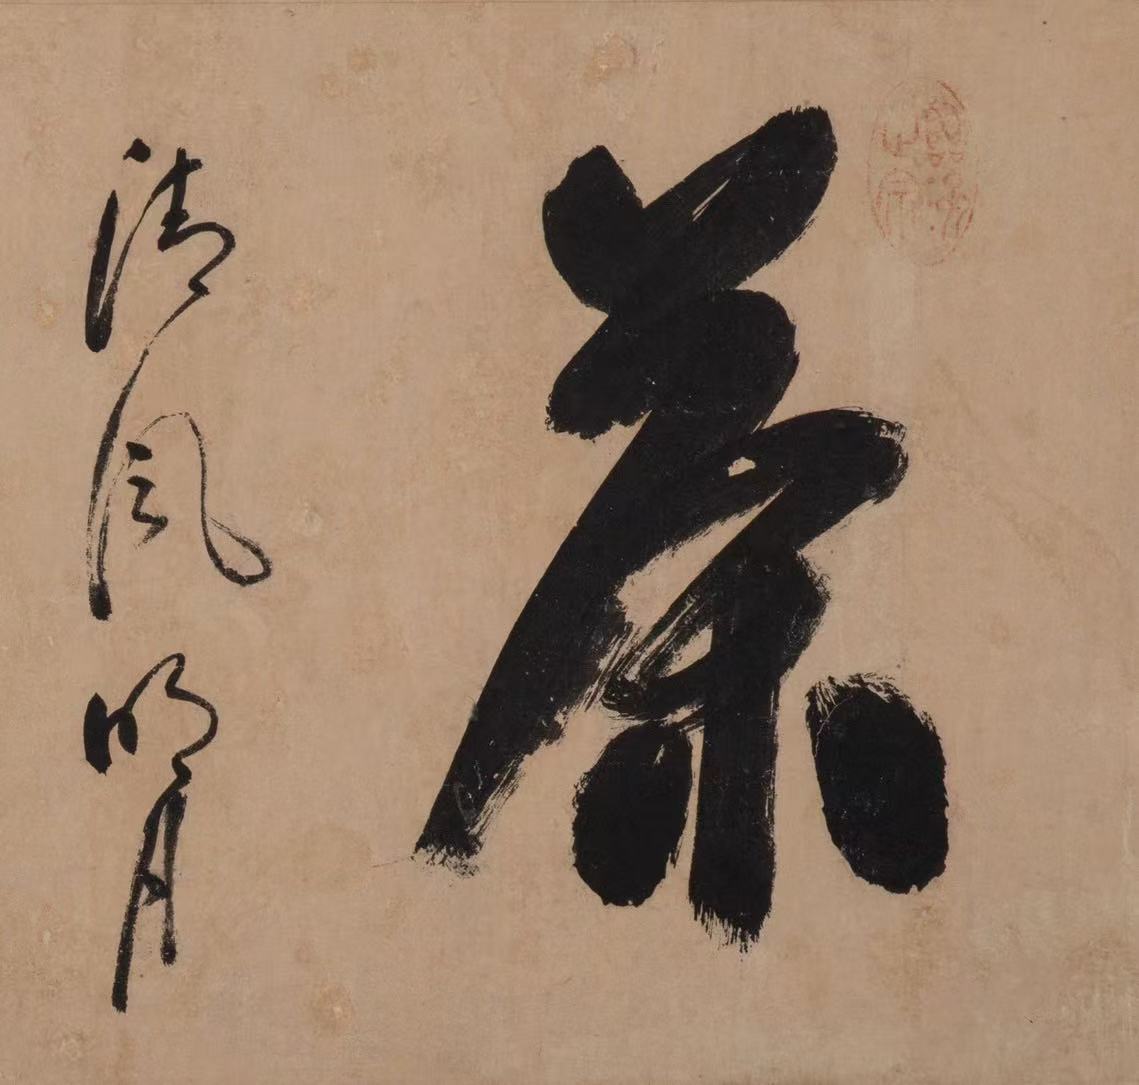 茶
清風明月